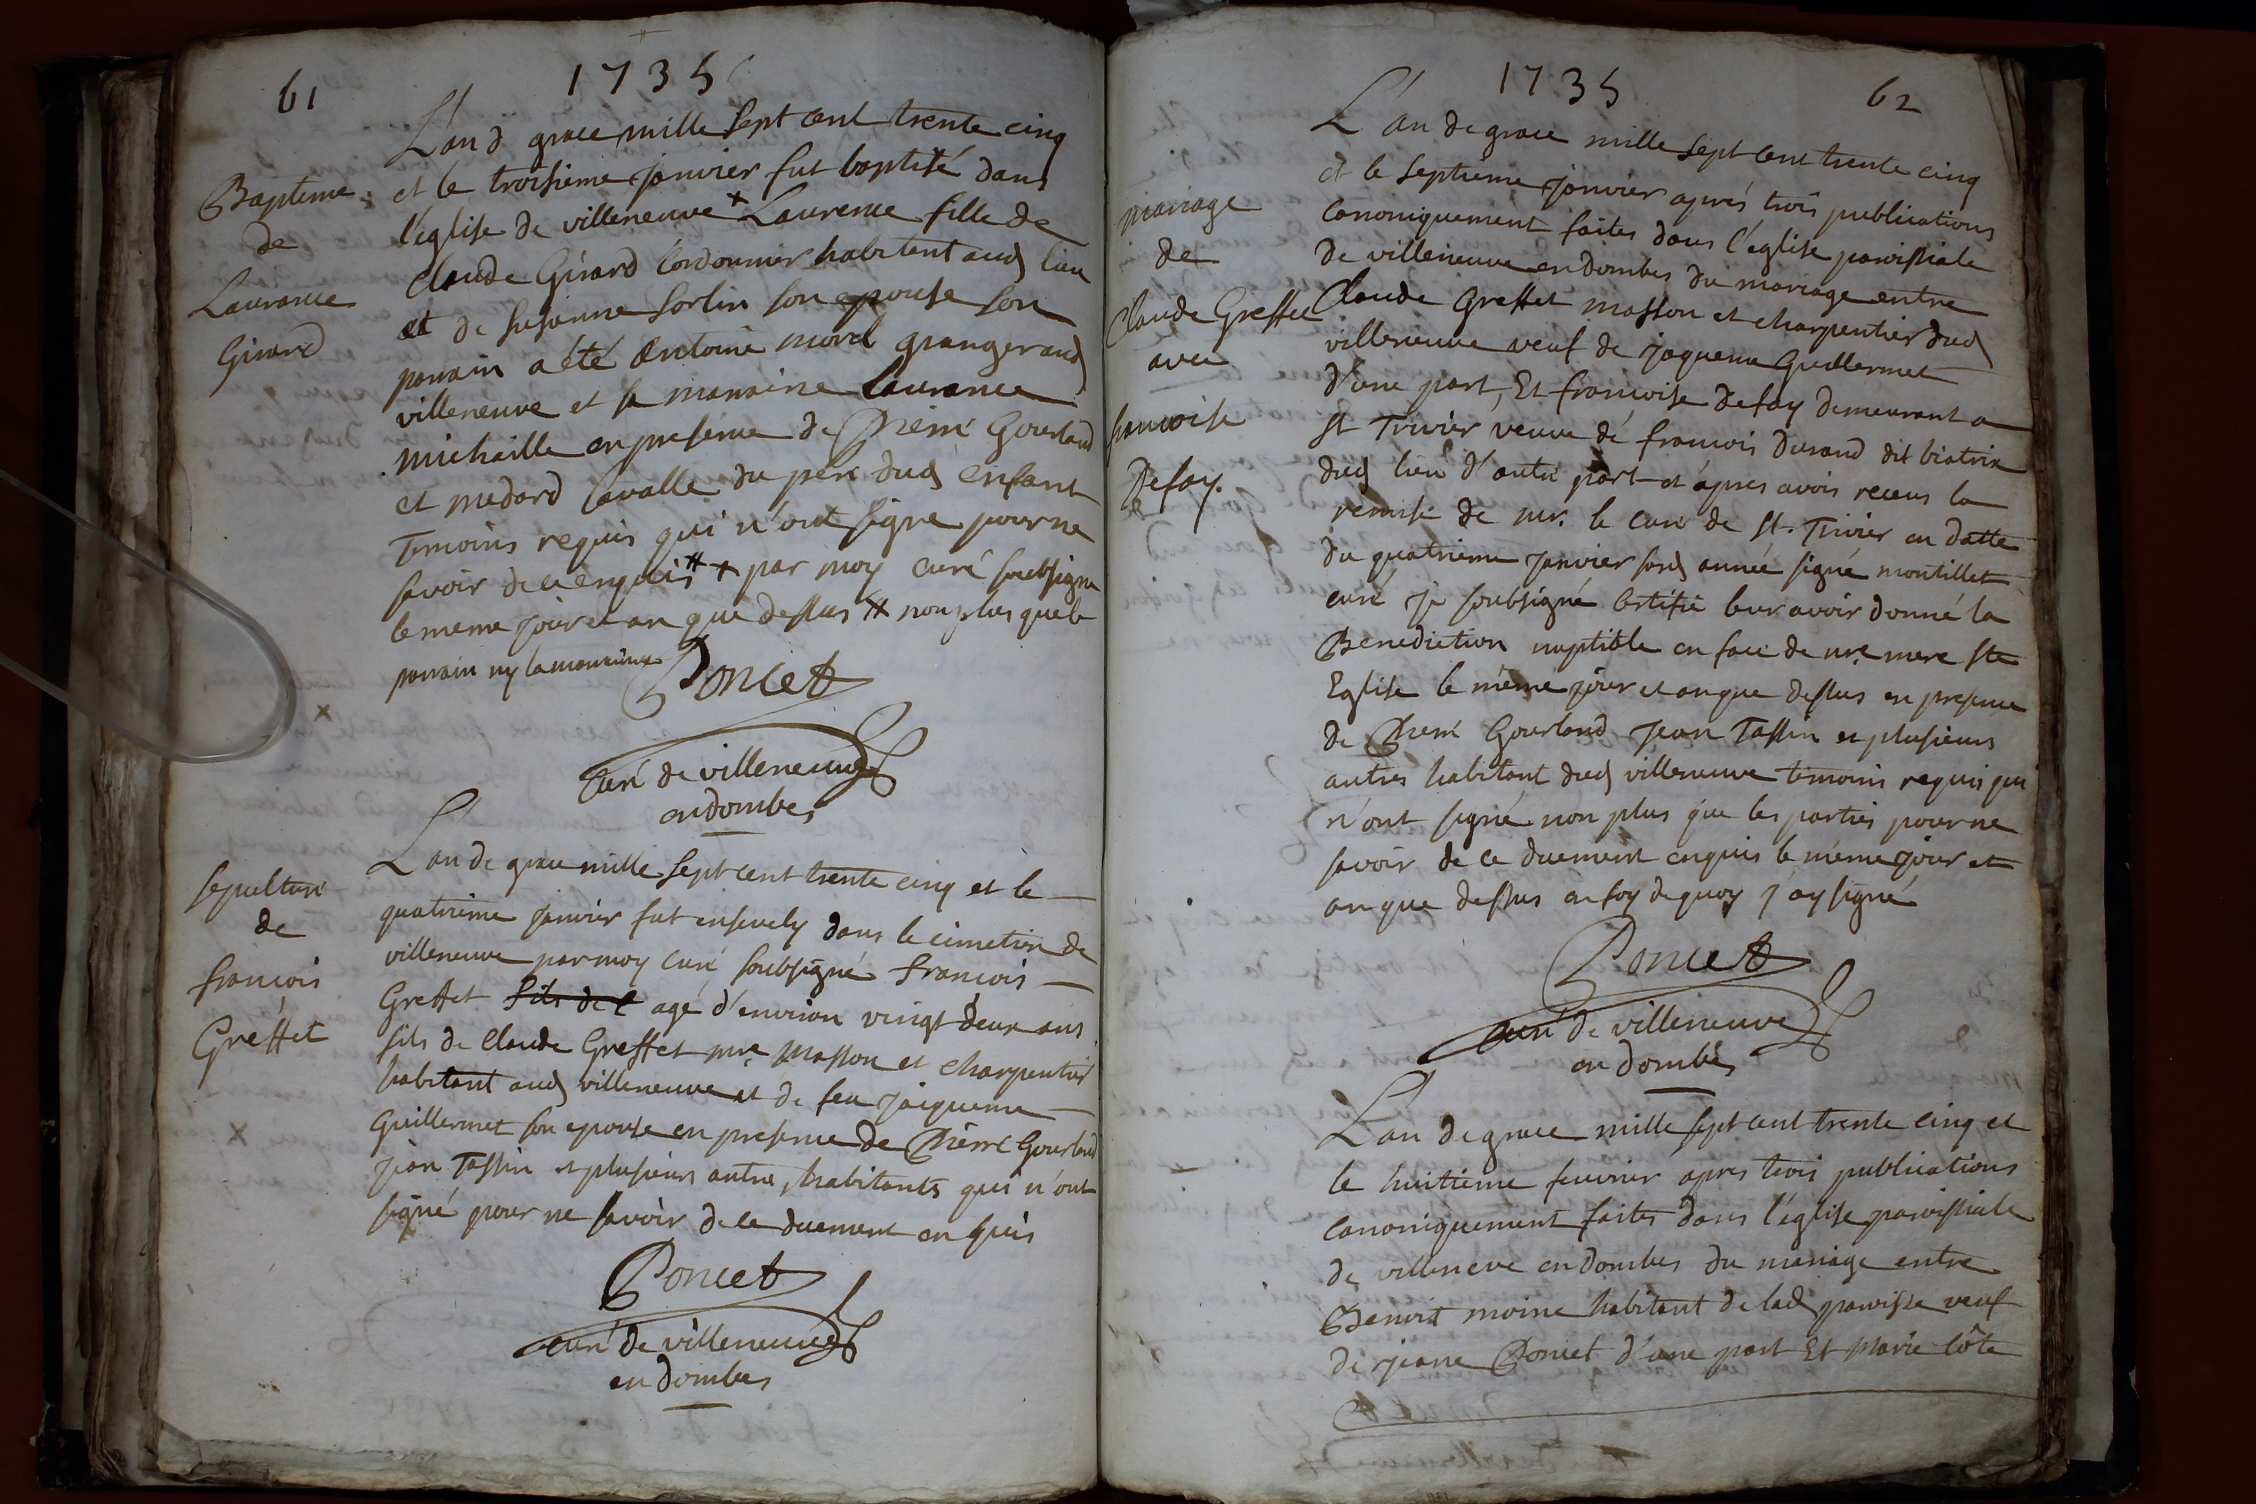 61
1735
Bapteme
de
Laurance
Girard
L'an d grace mille sept cent trente cinq
et le troisieme janvier fut baptisé dans
l'eglise de villeneuve + Laurence fille de
Claude Girard Cordonnier habitent aud lieu
et de susanne sorlin son epouse son
parrain a été Antoine morel granger aud
villeneuve et sa marraine Laurance
michaille en presence de Pierre Gourland
et medard lavalle du pere dud enfant
Temoins requis qui n'ont signe pour ne
savoir de ce enquis # + par moy curé soubsigne
le meme jour et an que dessus # non plus que le
parrain ny la marraine Poncet
curé de villeneuve
en dombes
x
sepulture
de
francois
Greffet
x
L'an de grace mille sept cent trente cinq et le
quatrieme janvier fut ensevely dans le cimetiere de
villeneuve par moy curé soubsigné francois
Greffet fils de C agé d'environ vingt deux ans
fils de Claude Greffet mre masson et charpentier
habitant aud villeneuve et de feu jaqueme
Guillermet son epouse en presence de Pierre Gourland
jean Tassin et plusieurs autres habitants qui n'ont
signé pour ne savoir de ce duement en quis
Poncet
curé de villeneuve
en dombes
1735
62
mariage
de
Claude Greffet
avec
francoise
Defay.
L'an de grace mille sept cent trente cinq
et le septieme janvier aprés trois publications
canoniquement faites dans l'église paroissiale
de villeneuve en dombes du mariage entre
Claude Greffet masson et charpentier dud
villeneuve veuf de jaqueme Guillermet
d'une part, Et francoise defay demeurant a
st Trivier veuve de francois Durand dit biatrix
dud lieu d'autre part et apres avoir receus la
remise de mr. le curé de st. Trivier en datte
du quatrieme janvier susd année signé montillet
curé je soubsigné certifie leur avoir donné la
Benediction nuptiale en face de nre mere ste
Eglise le même jour et an que dessus en presence
de Pierre Gourland Jean Tassin et plusieurs
autres habitant dud villeneuve temoins requis qui
n'ont signé non plus que les parties pour ne
savoir de ce duement enquis le même jour et
an que dessus en foy de quoy j'ay signé
Poncet
curé de villeneuve
en dombes
L'an de grace mille sept cent trente cinq et
le huitieme feuvrier apres trois publications
canoniquement faites dans l'église paroissiale
de villeneve en dombes du mariage entre
Benoit moine habitant de lad paroisse veuf
de jeane Poncet d'une part Et Marie Côte